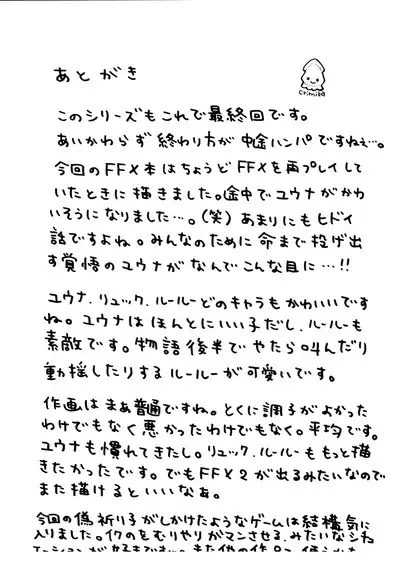 あとがき
Crimiba
このシリーズもこれで最終回です。
あいかわらず終わり方が中途ハンパですねぇ…。
今回のFFX本はちょうどFFXを再プレイして
いたときに描きました。途中でユウナがかわ
いそうになりました…。(笑)あまりにもヒドイ
話ですよね。みんなのために命まで投げ出
す覚悟のユウナがなんでこんな目に…!!
ユウナ.リュック.ルールーどのキャラもかわいいです
ね。ユウナはほんとにいい子だし.ルールーも
素敵です。物語後半でやたら叫んだり
動揺したりするルールーが可愛いです。
作画はまあ普通ですね。とくに調子がよかった
わけでもなく悪かったわけでもなく。平均です。
ユウナも慣れてきたし。リュック.ルールーももっと描
きたかったです。でもFFX2が出るみたいなので
また描けるといいなぁ。
今回の偽祈り子がしかけたようなゲームは結構気に
入りました。イクのをむりやりガマンさせる.みたいなシチュ